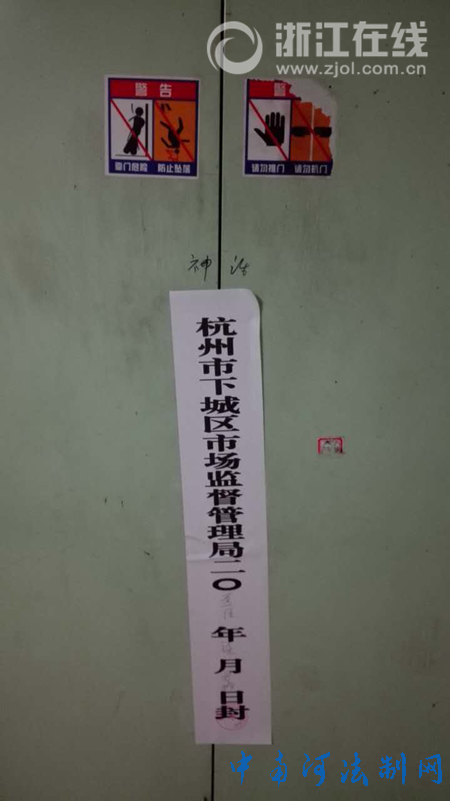 浙江在线
www.zjol.com.cn
警告
靠门危险 防止坠落
警
请勿推门 请勿扒门
神 话
杭州市下城区市场监督管理局二〇 年 月 日封
中南河法制网